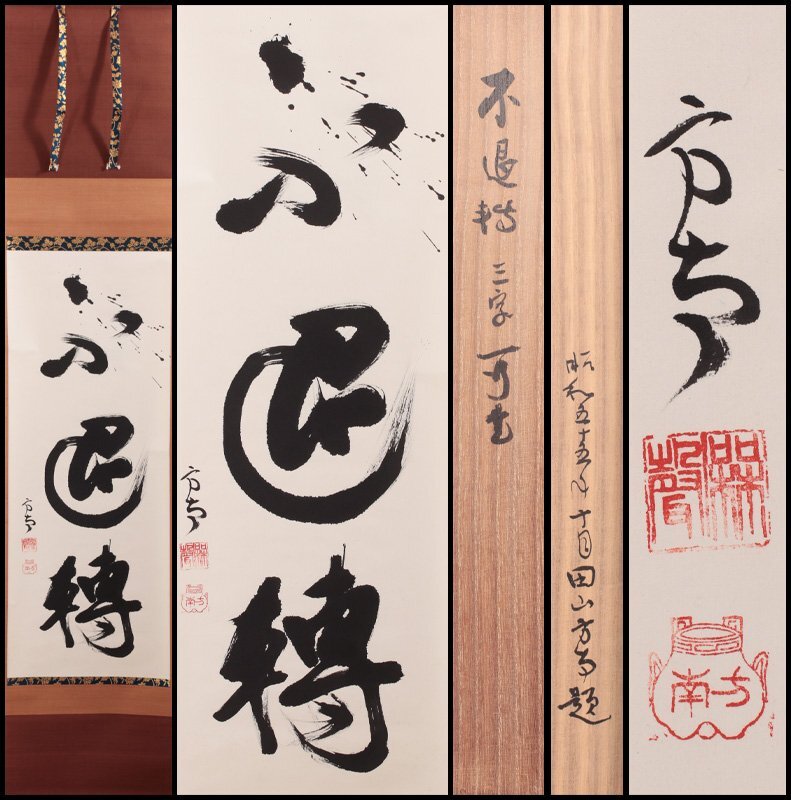 不
退
轉
方南
不
退
轉
方南
方南
不退轉 三字 一行書
昭和五十五年十月田山方南題
方南
方南